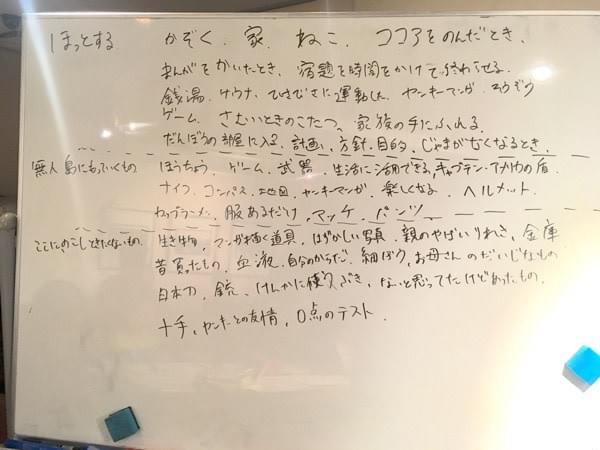 ほっとする かぞく、家、ねこ、ココアをのんだとき、
まんがをかいたとき、宿題を時間をかけて終わらせる、
銭湯、サウナ、ひさびさに運動した、ヤンキーマンガ、ろうそく
ゲーム、さむいときのこたつ、家族の手にふれる、
だんぼうの部屋に入る、計画、方針、目的、じゃまがなくなるとき、
無人島にもってくもの ほうちょう、ゲーム、武器、生活に活用できる、キャプテン・アメリカの盾
ナイフ、コンパス、地図、ヤンキーマンガ、楽しくなる、ヘルメット、
カップラーメン、服あるだけ、マッチ、パンツ、
ここにのこしときたくないもの 生き物、マンガ描く道具、はずかしい写真、親のやばいうわさ、金庫
昔買ったもの、血液、自分のからだ、細ぼう、お母さんのだいじなもの
日本刀、銃、けんかに使うぶき、ないと思ってたけどあったもの、
十手、ヤンキーとの友情、0点のテスト、